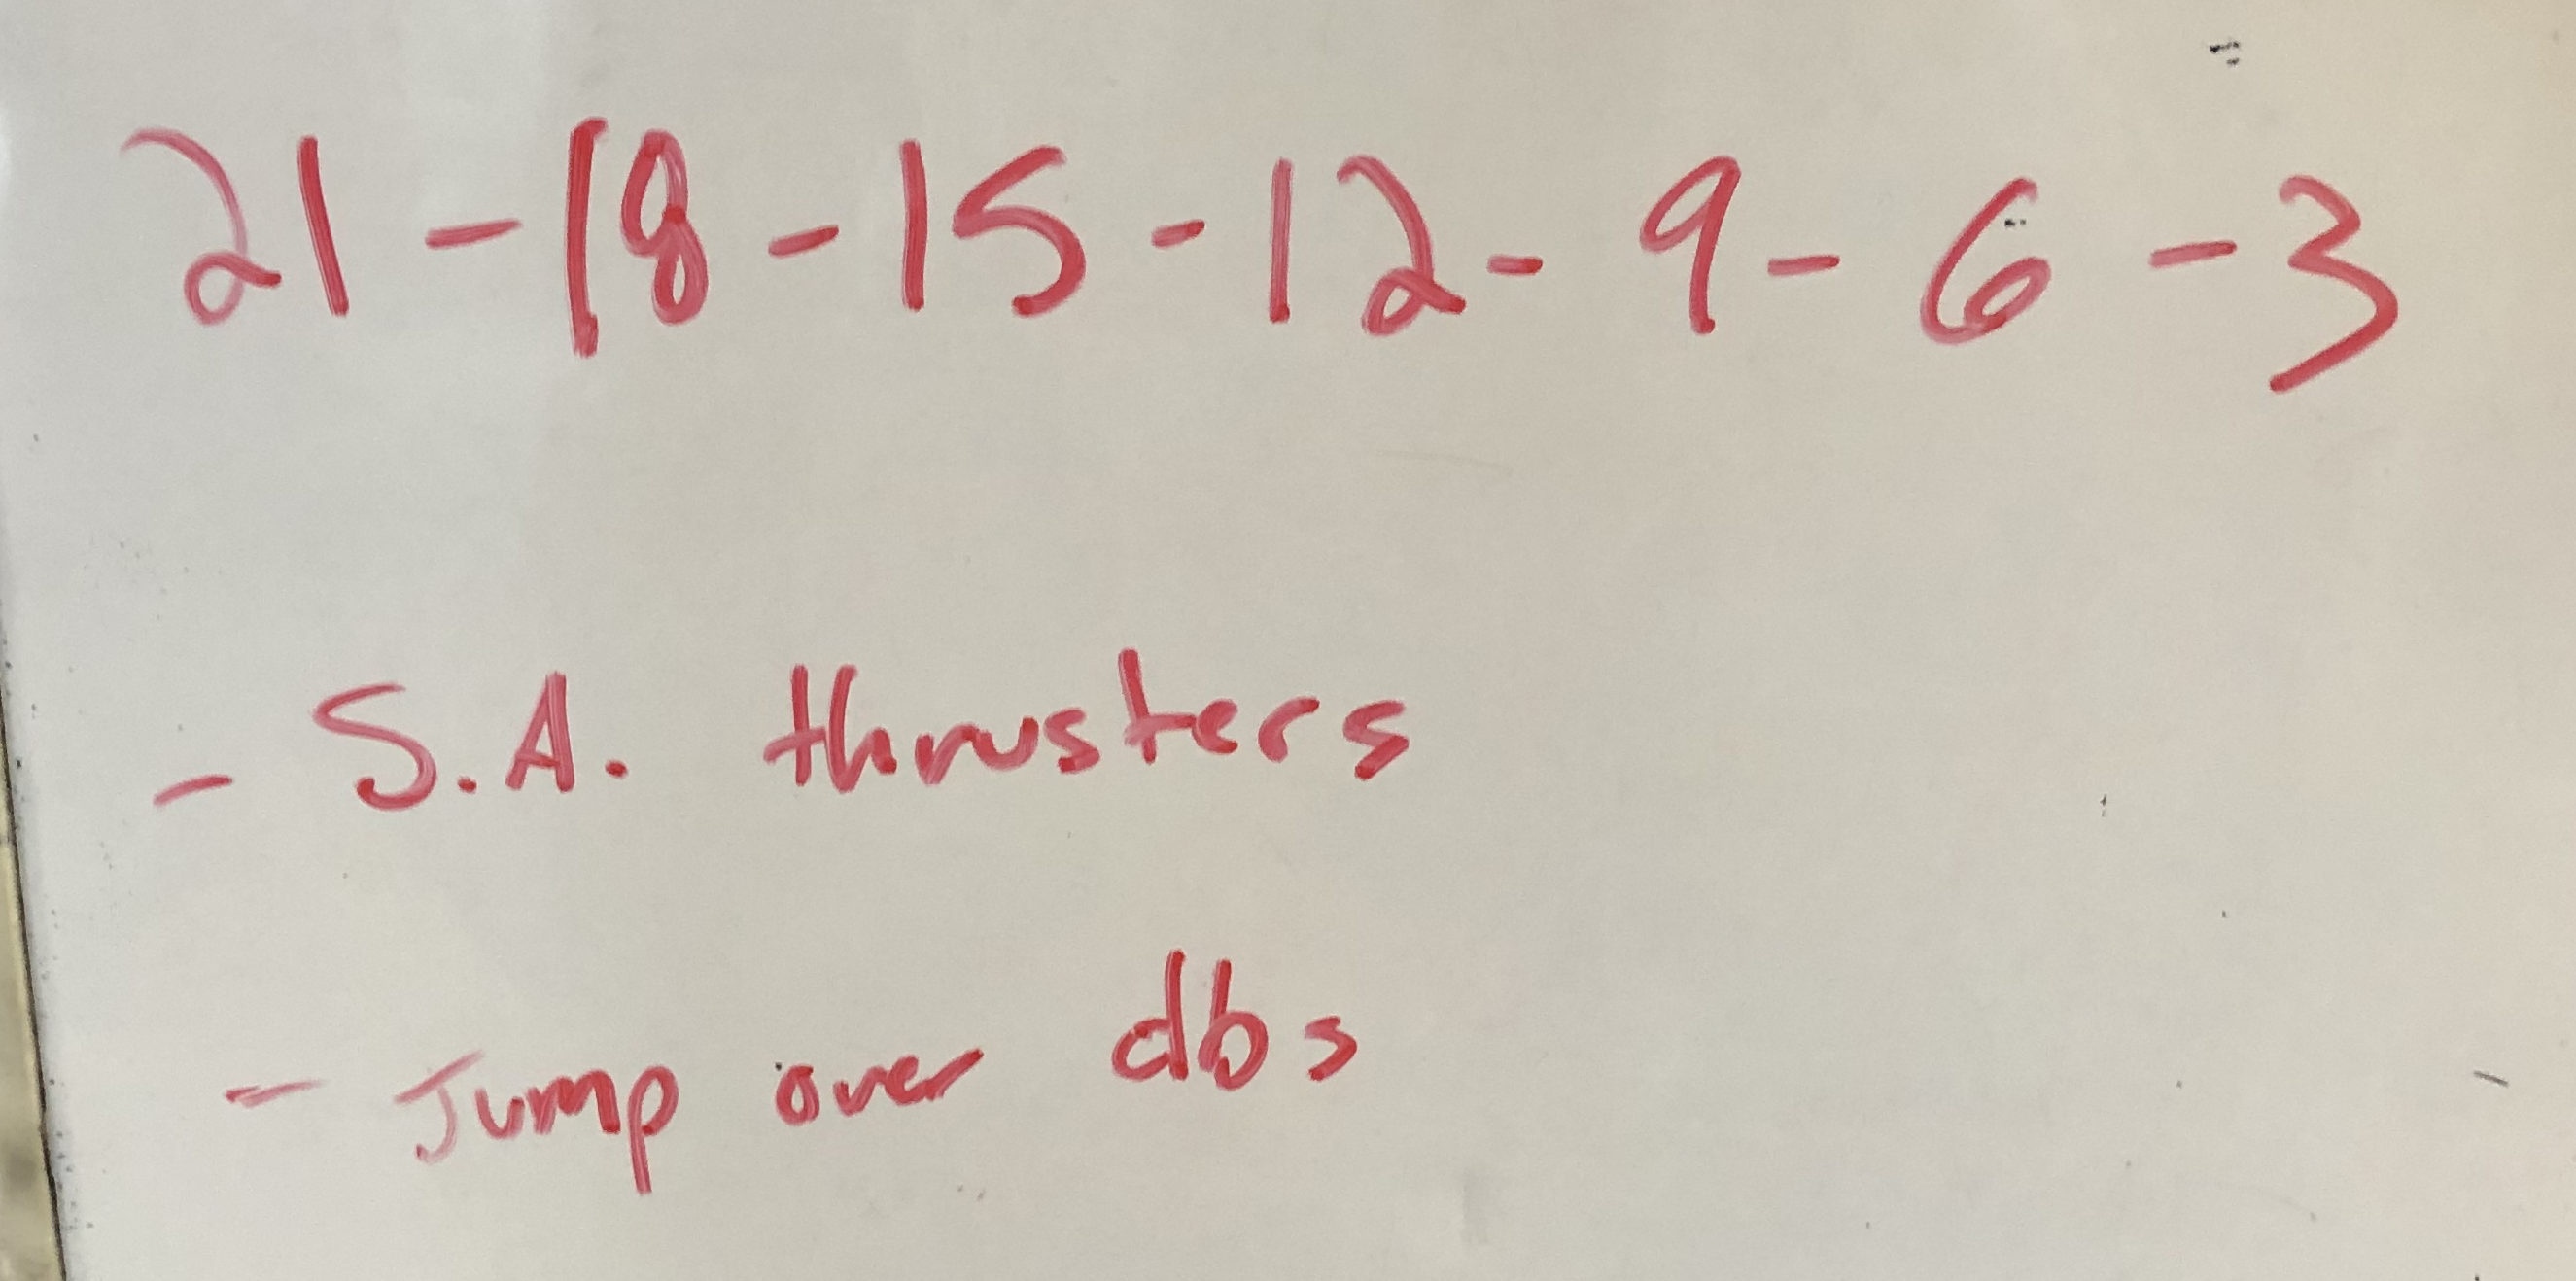 21 - 18 - 15 - 12 - 9 - 6 - 3
- S.A. thrusters
- Jump over dbs